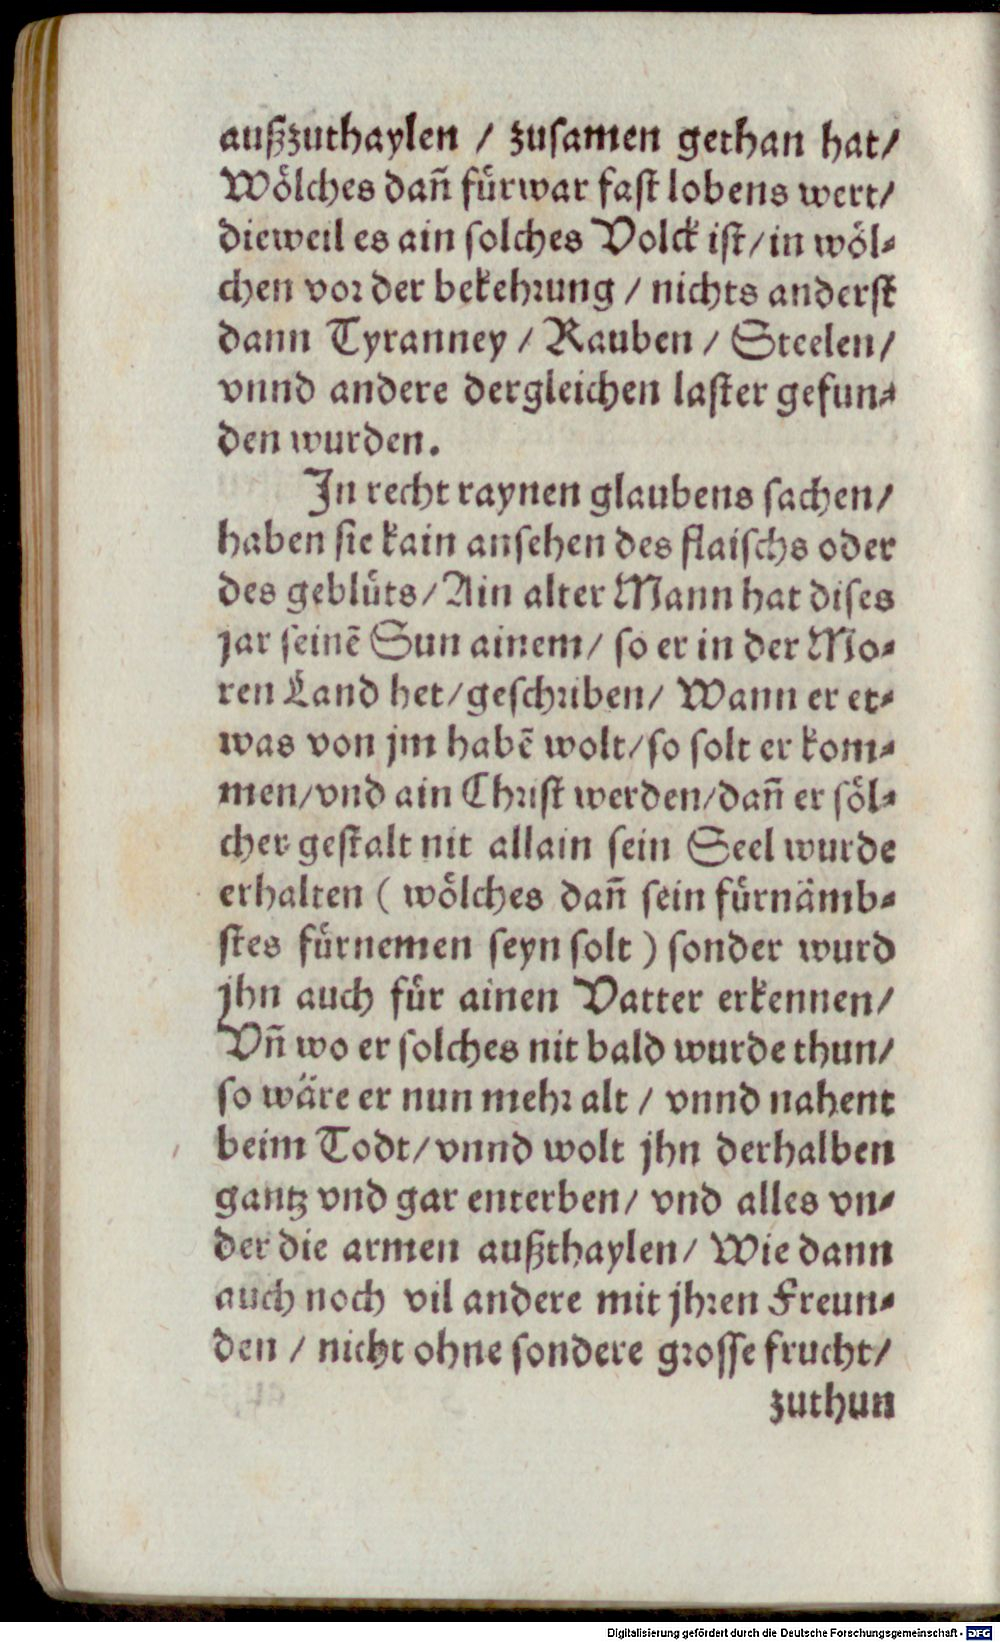 außzuthaylen / zusamen gethan hat/
Wölches dañ fürwar fast lobens wert/
dieweil es ain solches Volck ist/in wöl-
chen vor der bekehrung / nichts anderst
dann Tyranney / Rauben / Steelen/
vnnd andere dergleichen laster gefun-
den wurden.
In recht raynen glaubens sachen/
haben sie kain ansehen des flaischs oder
des geblüts/Ain alter Mann hat dises
jar seinē Sun ainem/ so er in der Mo-
ren Land het/geschriben/ Wann er et-
was von jm habē wolt/so solt er kom-
men/vnd ain Christ werden/dañ er söl-
cher gestalt nit allain sein Seel wurde
erhalten ( wölches dañ sein fürnämb-
stes fürnemen seyn solt ) sonder wurd
jhn auch für ainen Vatter erkennen/
Vñ wo er solches nit bald wurde thun/
so wäre er nun mehr alt / vnnd nahent
beim Todt/vnnd wolt jhn derhalben
gantz vnd gar enterben/ vnd alles vn-
der die armen außthaylen/ Wie dann
auch noch vil andere mit jhren Freun-
den / nicht ohne sondere grosse frucht/
zuthun
Digitalisierung gefördert durch die Deutsche Forschungsgemeinschaft - DFG